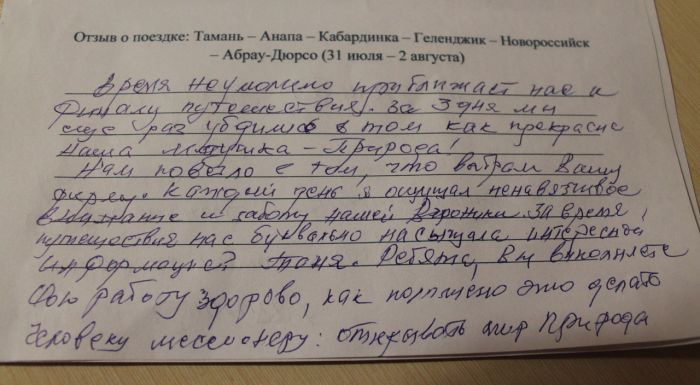 Отзыв о поездке: Тамань – Анапа – Кабардинка – Геленджик – Новороссийск
– Абрау-Дюрсо (31 июля – 2 августа)
Время неумолимо приближает нас к
финалу путешествия. За 3 дня мы
еще раз убдились в том как прекрасна
наша матушка – Природа!
Нам повезло с том, что выбрали Вашу
фирму. Каждый день я ощущал ненавязчивое
внимание и заботу нашей Вероники. За время
путешествия нас буквально насыщала интересной
информацией Таня. Ребята, Вы выполняете
Свою работу здорово, как положено это делать
Человеку мессионеру: открывать мир Природы